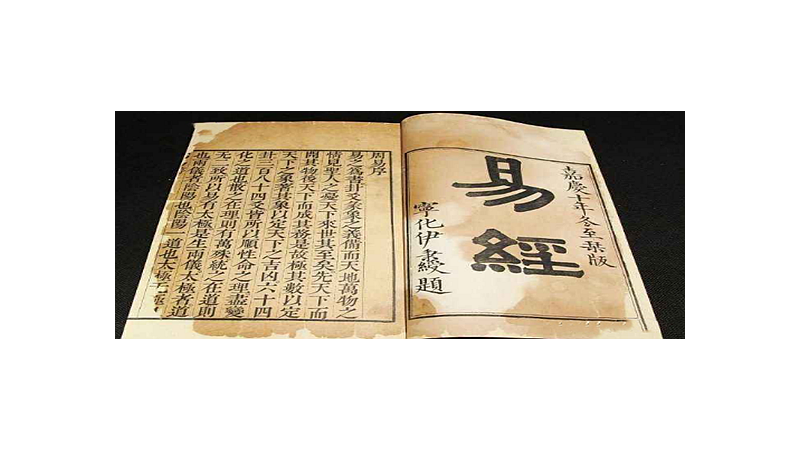 嘉慶十年冬至栞版
易經
寧化伊秉綬題
周易序
易之爲書卦爻彖象之義備而天地萬物之
情見聖人之憂天下來世其至矣先天下而
開其物後天下而成其務是故極其數以定
天下之象著其象以定天下之吉凶六十四
卦三百八十四爻皆所以順性命之理盡變
化之道也散之在理則有萬殊統之在道則
无二致所以易有太極是生兩儀太極者道
也兩儀者陰陽也陰陽一道也太極无